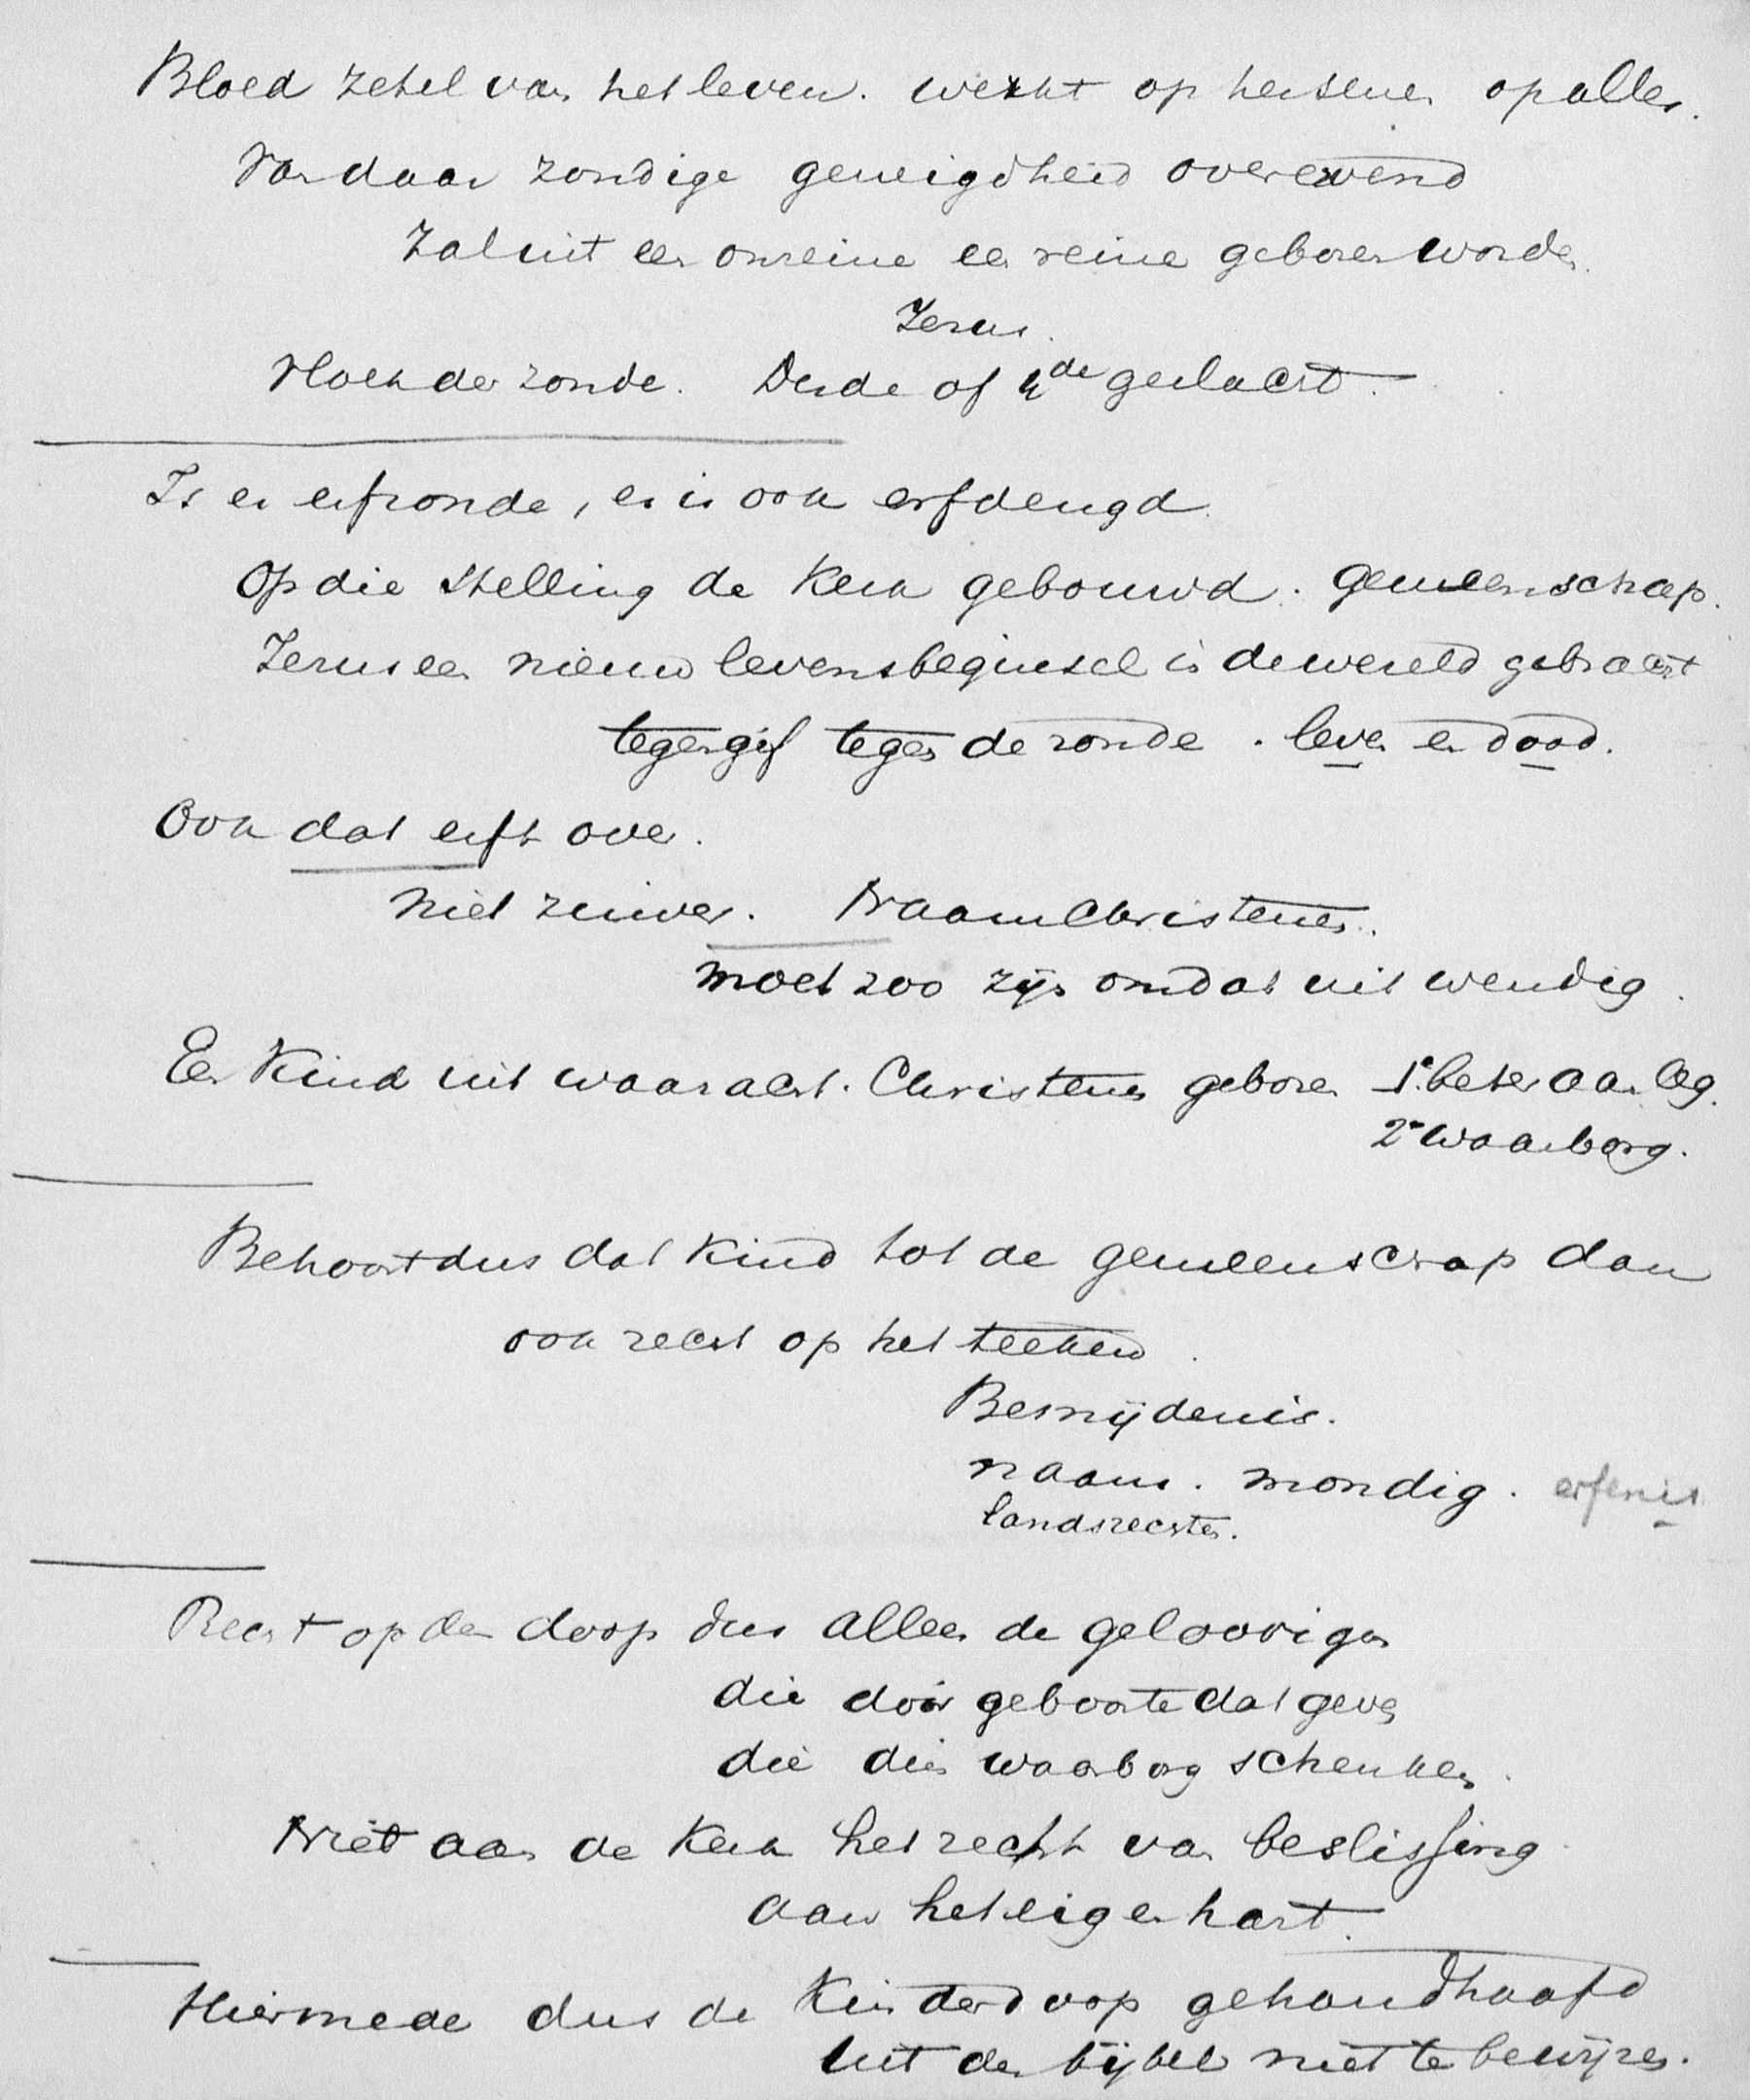 Bloed zetel van het leven. werkt op hersenen op alles.
Van daar zondige geneigdheid overervend
Zal uit een onreine een reine geboren worden.
Jezus.
Vloek der zonde. Derde of 4de geslacht.
Is er erfzonde, er is ook erfdeugd.
Op die stelling de Kerk gebouwd. Gemeenschap.
Jezus een nieuw levensbeginsel in de wereld gebracht
tegengif tegen de zonde. leven en dood.
Ook dat erft over.
Niet zuiver. Naamchristenen.
moet zoo zijn omdat uitwendig.
Een Kind uit waaracht. Christenen geboren 1e beter aanleg.
2e waarborg.
Behoort dus dat Kind tot de gemeenschap dan
ook recht op het teeken.
Besnijdenis.
naam. mondig. erfenis
landsrechten.
Recht op den doop dus alleen de geloovigen
die door geboorte dat geven
die dien waarborg schenken.
Niet aan de Kerk het recht van beslissing
aan het eigen hart.
Hiermede dus de Kinderdoop gehandhaafd
uit den bijbel niet te bewijzen.